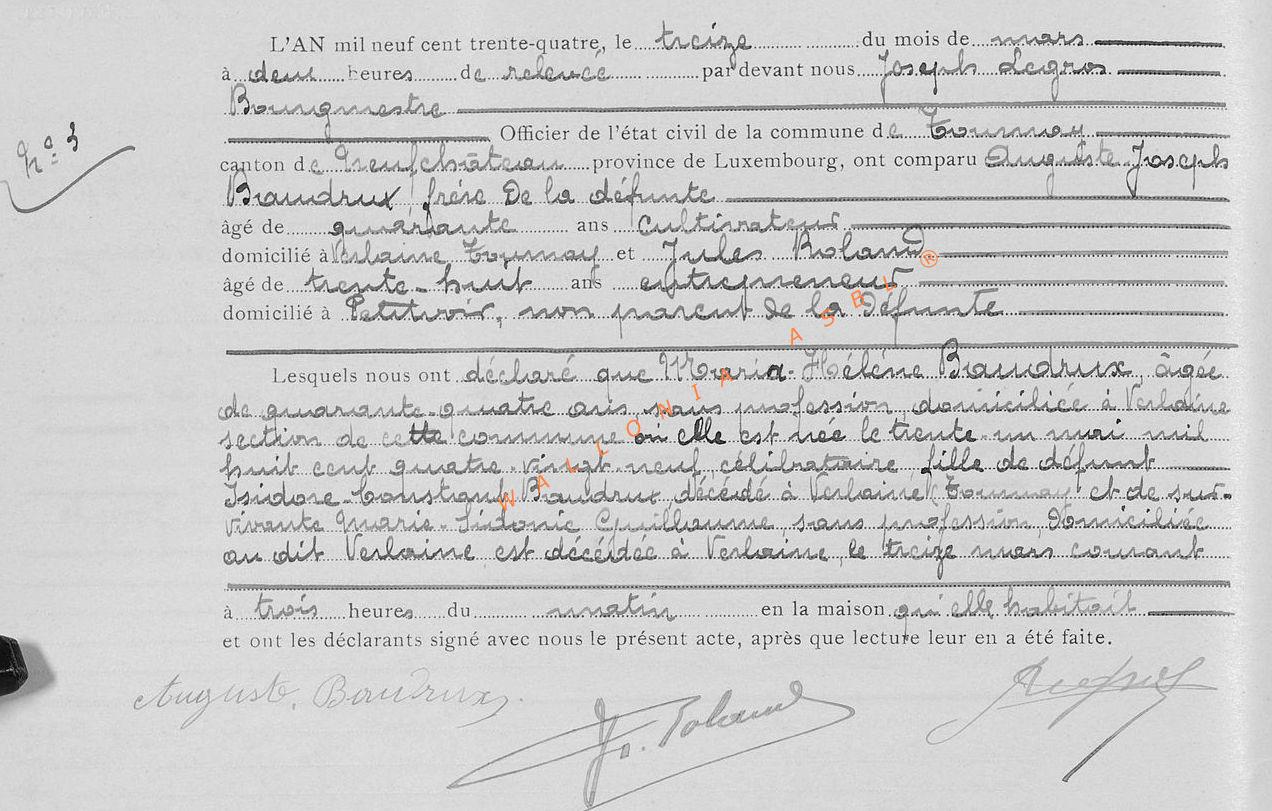 N° 3
L'AN mil neuf cent trente-quatre, le treize du mois de mars
à deux heures de relevée par devant nous Joseph Legros
Bourgmestre
Officier de l'état civil de la commune de Tournay
canton de Neufchâteau province de Luxembourg, ont comparu Auguste Joseph
Baudrux, frère De la défunte
âgé de quarante ans cultivateur
domicilié à Verlaine Tournay et Jules Roland
âgé de trente-huit ans entrepreneur
domicilié à Petitvoir, non parent de la Défunte
Lesquels nous ont déclaré que Maria-Hélène Baudrux, âgée
de quarante-quatre ans sans profession, domiciliée à Verlaine
section de cette commune où elle est née le trente-un mai mil
huit cent quatre-vingt-neuf, célibataire fille de défunt
Isidore-Constant Baudrux décédé à Verlaine (Tournay) et de sur-
vivante Marie-Sidonie Guillaume, sans profession, Domiciliée
au dit Verlaine est décédée à Verlaine, le treize mars courant
à trois heures du matin en la maison qu'elle habitait
et ont les déclarants signé avec nous le présent acte, après que lecture leur en a été faite.
Auguste, Baudrux. J. Roland
WALLONIA ASBL ®